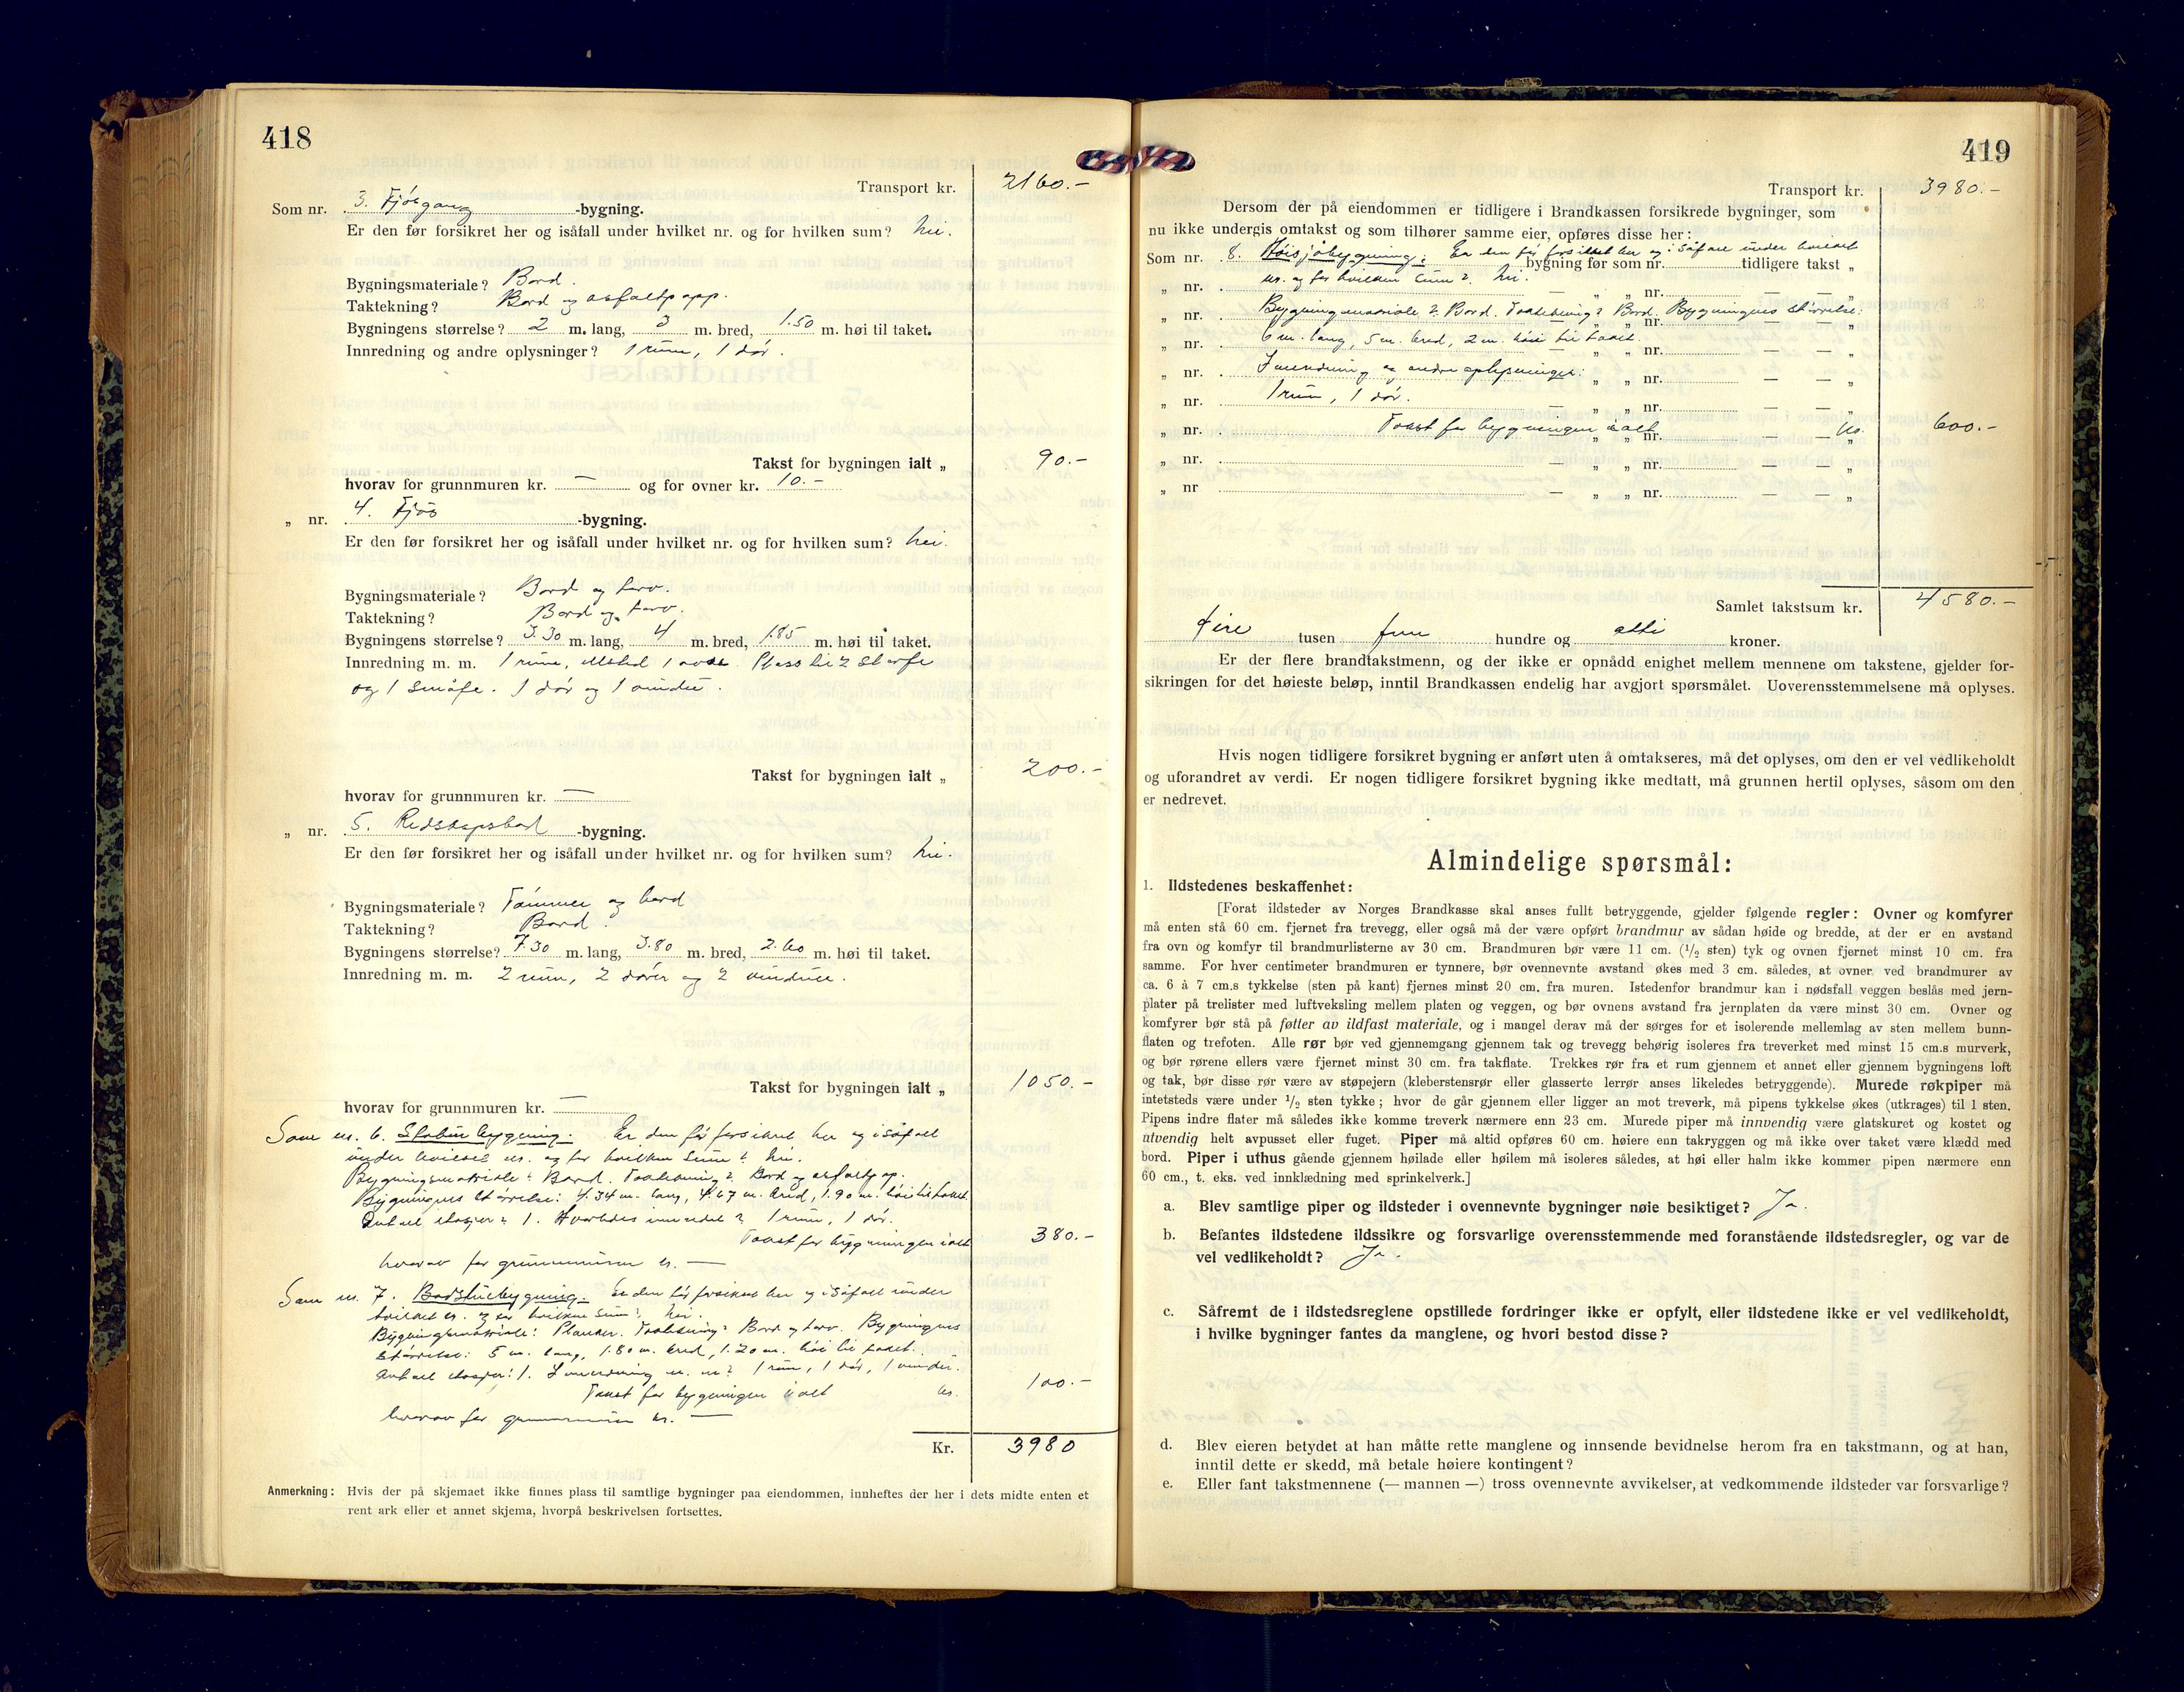 418
Transport kr. 2160.-
Som nr. 3. Fjösgang -bygning.
Er den før forsikret her og isåfall under hvilket nr. og for hvilken sum? Nei.
Bygningsmateriale? Bord.
Taktekning? Bord og asfaltpapp.
Bygningens størrelse? 2 m. lang, 3 m. bred, 1.50 m. høi til taket.
Innredning og andre oplysninger? 1 rum, 1 dör.
Takst for bygningen ialt „ 90.-
hvorav for grunnmuren kr. — og for ovner kr. 10.-
„ nr. 4. Fjös -bygning.
Er den før forsikret her og isåfall under hvilket nr. og for hvilken sum? Nei.
Bygningsmateriale? Bord og torv.
Taktekning? Bord og torv.
Bygningens størrelse? 3.30 m. lang, 4 m. bred, 1.85 m. høi til taket.
Innredning m. m. 1 rum, ildsted 1 ovn. Plass til 2 storfe
og 1 småfe. 1 dör og 1 vindu.
Takst for bygningen ialt „ 200.-
hvorav for grunnmuren kr. —
„ nr. 5. Redskapsbod -bygning.
Er den før forsikret her og isåfall under hvilket nr. og for hvilken sum? Nei.
Bygningsmateriale? Tömmer og bord
Taktekning? Bord.
Bygningens størrelse? 7.30 m. lang, 3.80 m. bred, 2.60 m. høi til taket.
Innredning m. m. 2 rum, 2 dörer og 2 vinduer.
Takst for bygningen ialt „ 1050.-
hvorav for grunnmuren kr. —
Som nr. 6. Stabur bygning. Er den för forsikret her og isåfall
under hvilket nr. og for hvilken sum? Nei.
Bygningsmateriale? Bord. Taktekning? Bord og asfaltpap.
Bygningens störrelse: 4.34 m. lang, 4.67 m. bred, 1.90 m. höi til taket.
Antall etasjer? 1. Hvorledes innredet? 1 rum, 1 dör.
Takst for bygningen ialt 380.-
hvorav for grunnmuren kr. —
Som nr. 7. Badstuebygning. Er den för forsikret her og isåfall under
hvilket nr. og for hvilken sum? Nei.
Bygningsmateriale: Planker. Taktekning? Bord og torv. Bygningens
störrelse: 5 m. lang, 1.80 m. bred, 1.20 m. höi til taket.
Antall etasjer: 1. Innredning m. m? 1 rum, 1 dör, 1 vindu.
Takst for bygningen ialt kr. 100.-
hvorav for grunnmuren kr. —
Kr. 3980
Anmerkning: Hvis der på skjemaet ikke finnes plass til samtlige bygninger paa eiendommen, innheftes der her i dets midte enten et
rent ark eller et annet skjema, hvorpå beskrivelsen fortsettes.
419
Transport kr. 3980.-
Dersom der på eiendommen er tidligere i Brandkassen forsikrede bygninger, som
nu ikke undergis omtakst og som tilhører samme eier, opføres disse her:
Som nr. 8. Höisjåbygning: Er den för forsikret her og i såfall under hvilket
bygning før som nr. tidligere takst „
„ nr. nr. og for hvilken sum? Nei. — „ „ nr. — — „
„ nr. Bygningsmateriale? Bord. Taktekning? Bord. Bygningens störrelse: „ nr. — — „
„ nr. 6 m. lang, 5 m. bred, 2 m. höi til taket. — „ „ nr. — — „
„ nr. Innredning og andre oplysninger: „ „ nr. — — „
„ nr. 1 rum, 1 dör. — „ „ nr. — — „
„ nr. Takst for bygningen ialt „ nr. — — kr. 600.-
„ nr. — „ „ nr. — — „
„ nr — „ „ nr. — — „
Samlet takstsum kr. 4580.-
Fire tusen fem hundre og otti kroner.
Er der flere brandtakstmenn, og der ikke er opnådd enighet mellem mennene om takstene, gjelder for-
sikringen for det høieste beløp, inntil Brandkassen endelig har avgjort spørsmålet. Uoverensstemmelsene må oplyses.
Hvis nogen tidligere forsikret bygning er anført uten å omtakseres, må det oplyses, om den er vel vedlikeholdt
og uforandret av verdi. Er nogen tidligere forsikret bygning ikke medtatt, må grunnen hertil oplyses, såsom om den
er nedrevet.
Almindelige spørsmål:
1. Ildstedenes beskaffenhet:
[Forat ildsteder av Norges Brandkasse skal anses fullt betryggende, gjelder følgende regler: Ovner og komfyrer
må enten stå 60 cm. fjernet fra trevegg, eller også må der være opført brandmur av sådan høide og bredde, at der er en avstand
fra ovn og komfyr til brandmurlisterne av 30 cm. Brandmuren bør være 11 cm. (1/2 sten) tyk og ovnen fjernet minst 10 cm. fra
samme. For hver centimeter brandmuren er tynnere, bør ovennevnte avstand økes med 3 cm. således, at ovner ved brandmurer av
ca. 6 à 7 cm.s tykkelse (sten på kant) fjernes minst 20 cm. fra muren. Istedenfor brandmur kan i nødsfall veggen beslås med jern-
plater på trelister med luftveksling mellem platen og veggen, og bør ovnens avstand fra jernplaten da være minst 30 cm. Ovner og
komfyrer bør stå på føtter av ildfast materiale, og i mangel derav må der sørges for et isolerende mellemlag av sten mellem bunn-
flaten og trefoten. Alle rør bør ved gjennemgang gjennem tak og trevegg behørig isoleres fra treverket med minst 15 cm.s murverk,
og bør rørene ellers være fjernet minst 30 cm. fra takflate. Trekkes rør fra et rum gjennem et annet eller gjennem bygningens loft
og tak, bør disse rør være av støpejern (kleberstensrør eller glasserte lerrør anses likeledes betryggende). Murede røkpiper må
intetsteds være under 1/2 sten tykke; hvor de går gjennem eller ligger an mot treverk, må pipens tykkelse økes (utkrages) til 1 sten.
Pipens indre flater må således ikke komme treverk nærmere enn 23 cm. Murede piper må innvendig være glatskuret og kostet og
utvendig helt avpusset eller fuget. Piper må altid opføres 60 cm. høiere enn takryggen og må ikke over taket være klædd med
bord. Piper i uthus gående gjennem høilade eller høilem må isoleres således, at høi eller halm ikke kommer pipen nærmere enn
60 cm., t. eks. ved innklædning med sprinkelverk.]
a. Blev samtlige piper og ildsteder i ovennevnte bygninger nøie besiktiget? Ja.
b. Befantes ildstedene ildssikre og forsvarlige overensstemmende med foranstående ildstedsregler, og var de
vel vedlikeholdt? Ja.
c. Såfremt de i ildstedsreglene opstillede fordringer ikke er opfylt, eller ildstedene ikke er vel vedlikeholdt,
i hvilke bygninger fantes da manglene, og hvori bestod disse?
d. Blev eieren betydet at han måtte rette manglene og innsende bevidnelse herom fra en takstmann, og at han,
inntil dette er skedd, må betale høiere kontingent?
e. Eller fant takstmennene (— mannen —) tross ovennevnte avvikelser, at vedkommende ildsteder var forsvarlige?